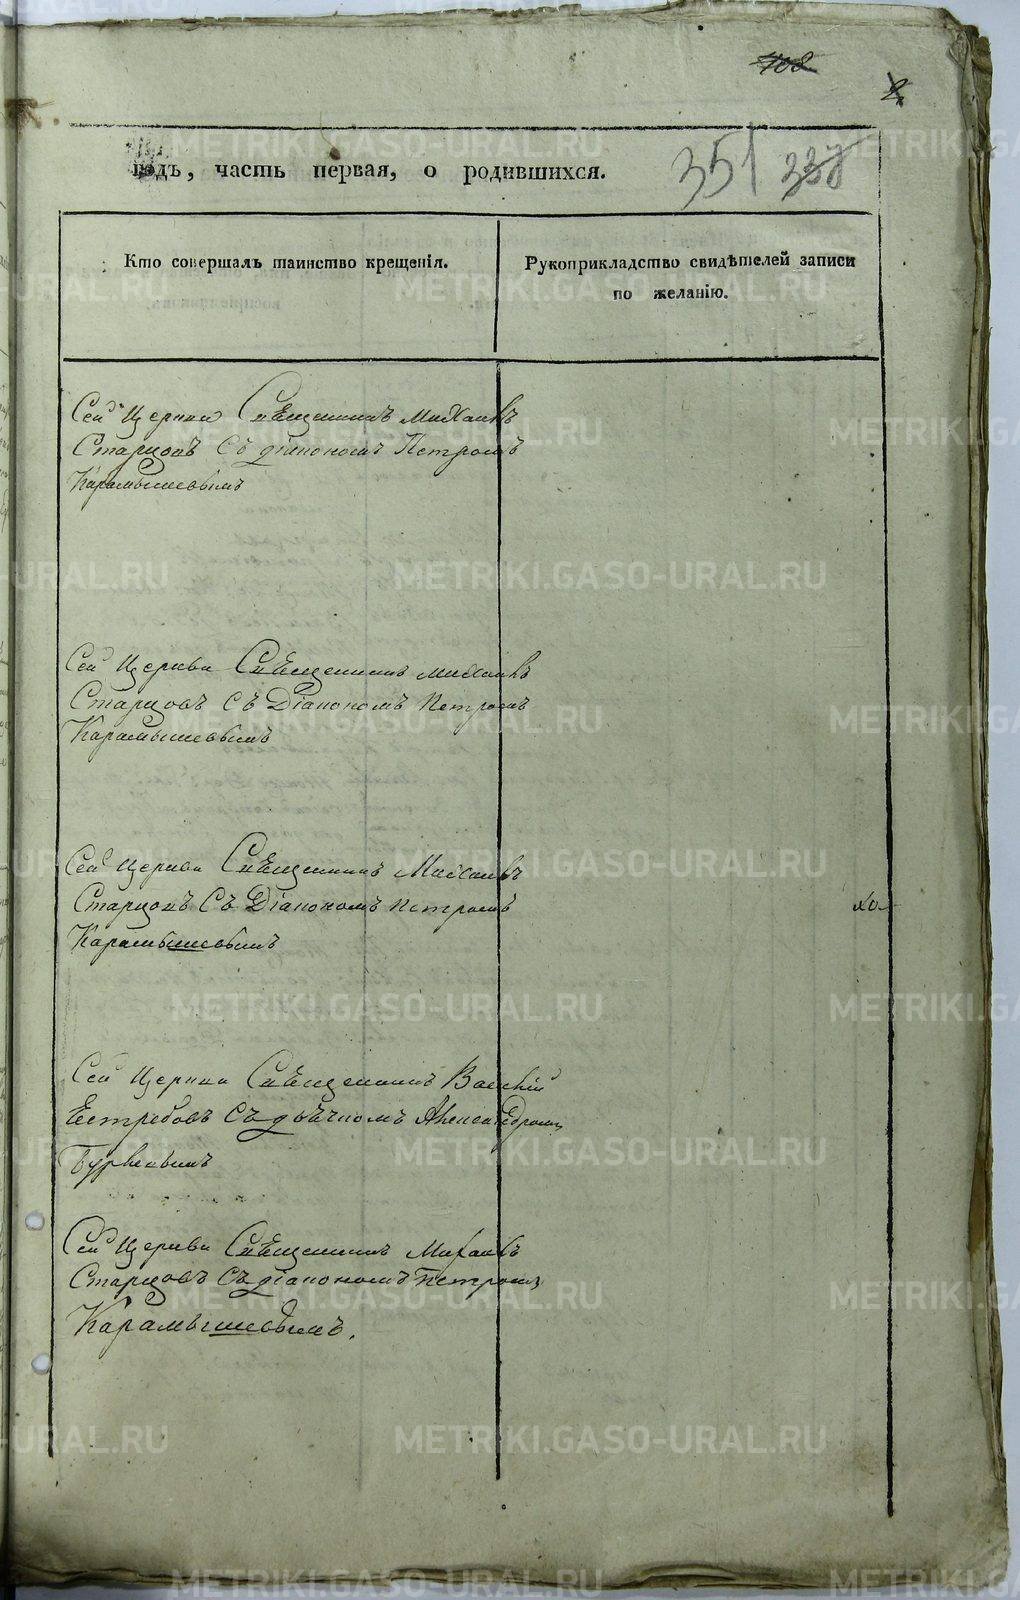 408
2
годъ, часть первая, о родившихся.
351 338
Кто совершалъ таинство крещенія.
Рукоприкладство свидѣтелей записи
по желанію.
Сей Церкви Священникъ Михаилъ
Старцовъ Съ діакономъ Петромъ
Карамышевымъ
Сей Церкви Священникъ Михаилъ
Старцовъ Съ Діакономъ Петромъ
Карамышевымъ
Сей Церкви Священникъ Михаилъ
Старцовъ Съ Діакономъ Петромъ
Карамышевымъ
Сей Церкви Священникъ Василій
Естребовъ Съ дьячкомъ Александромъ
Сей Церкви Священникъ Михаилъ
Старцовъ Съ діакономъ Петромъ
Карамышевымъ.
METRIKI.GASO-URAL.RU